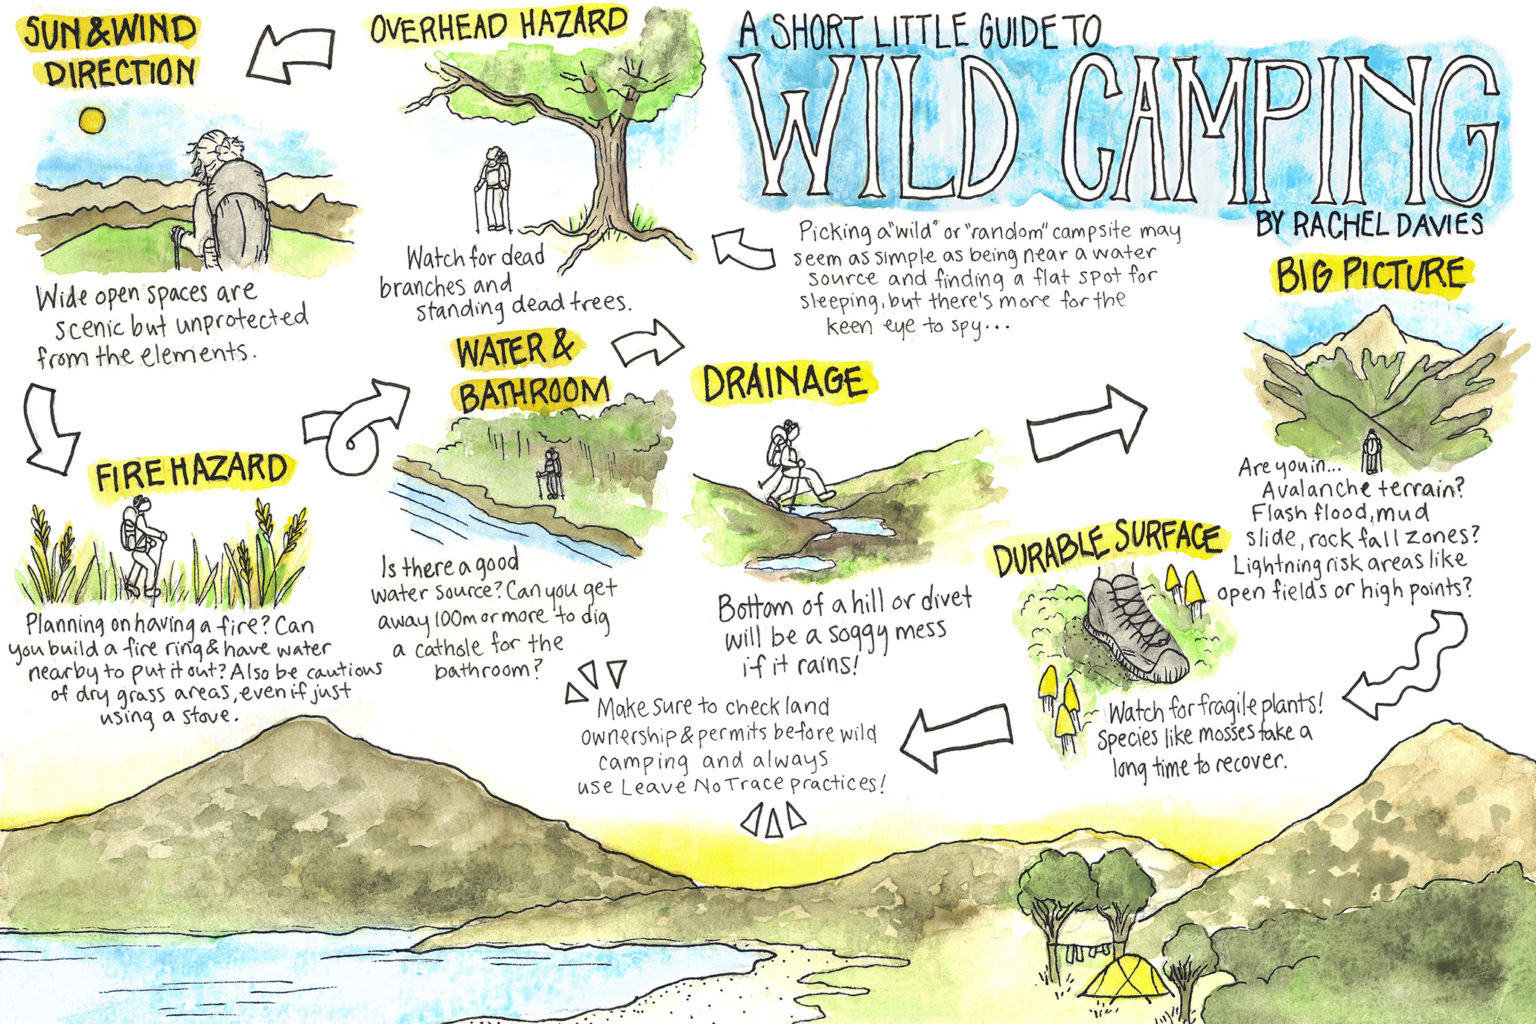 A SHORT LITTLE GUIDE TO
WILD CAMPING
BY RACHEL DAVIES
Picking a "wild" or "random" campsite may
seem as simple as being near a water
source and finding a flat spot for
sleeping, but there's more for the
keen eye to spy...
OVERHEAD HAZARD
Watch for dead
branches and
standing dead trees.
SUN & WIND
DIRECTION
Wide open spaces are
scenic but unprotected
from the elements.
FIRE HAZARD
Planning on having a fire? Can
you build a fire ring & have water
nearby to put it out? Also be cautious
of dry grass areas, even if just
using a stove.
WATER &
BATHROOM
Is there a good
water source? Can you get
away 100m or more to dig
a cathole for the
bathroom?
DRAINAGE
Bottom of a hill or divet
will be a soggy mess
if it rains!
BIG PICTURE
Are you in...
Avalanche terrain?
Flash flood, mud
slide, rock fall zones?
Lightning risk areas like
open fields or high points?
DURABLE SURFACE
Watch for fragile plants!
Species like mosses take a
long time to recover.
Make sure to check land
ownership & permits before wild
camping and always
use Leave No Trace practices!